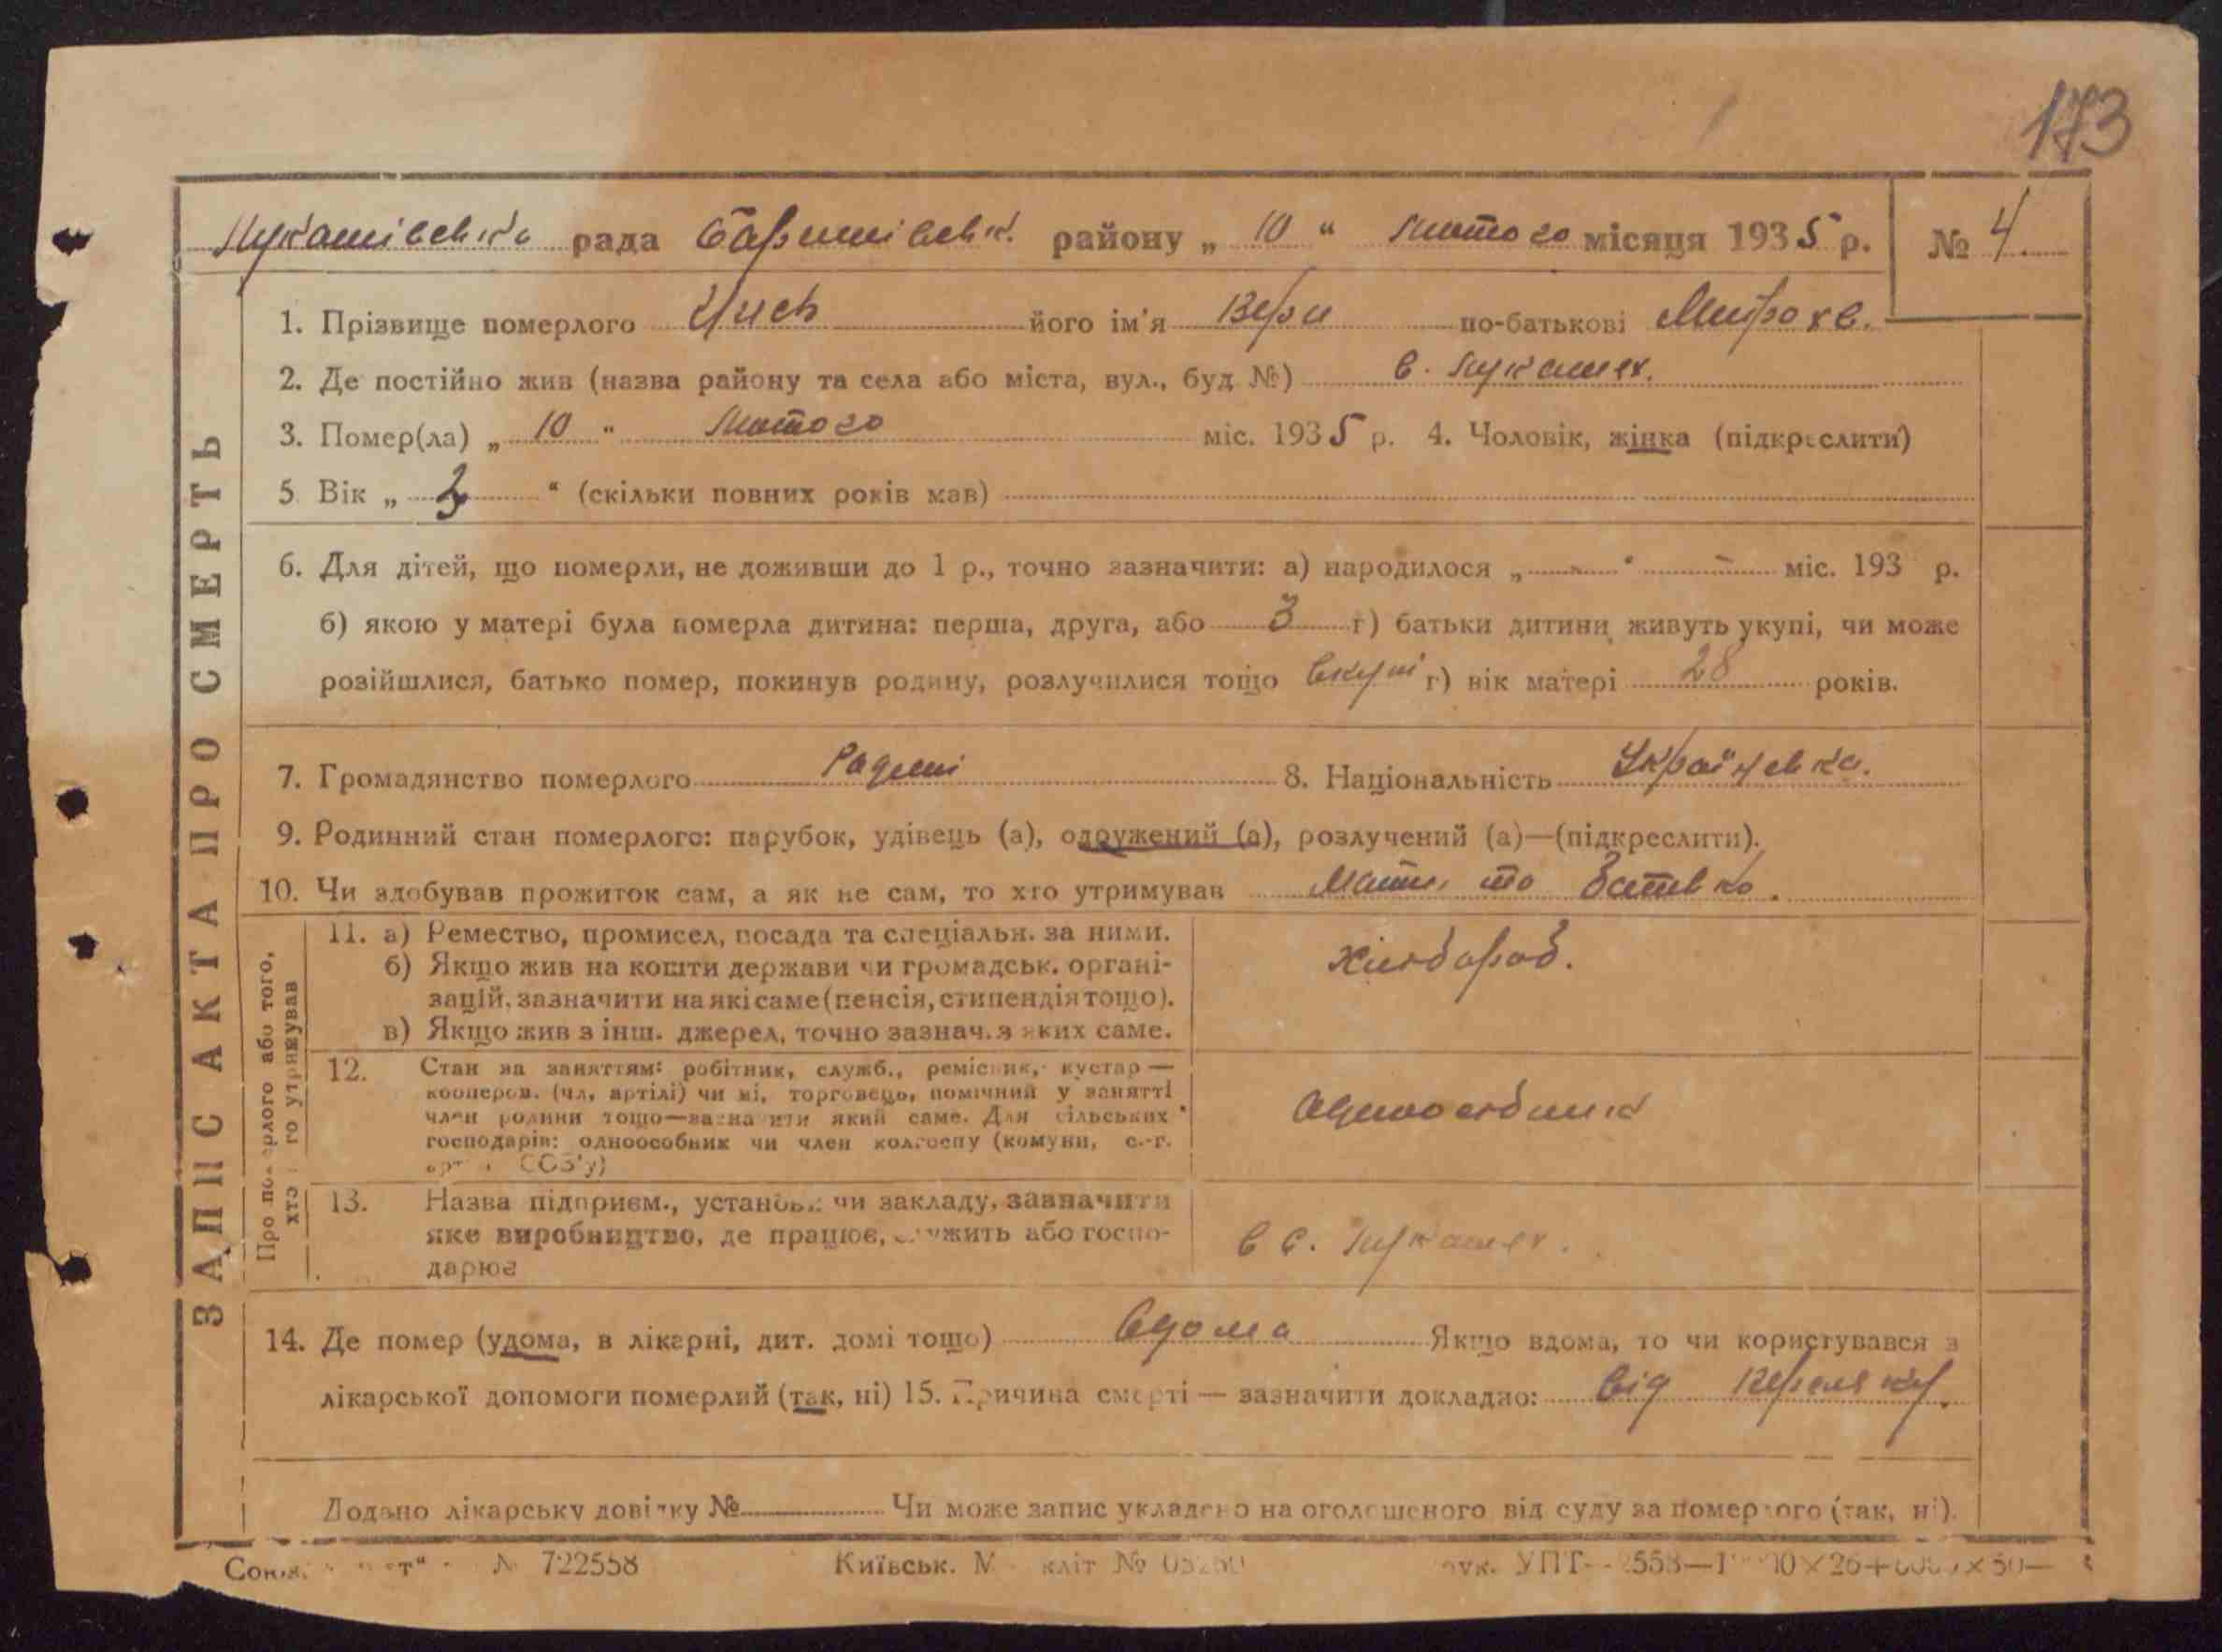 173
Лукашівська рада Баришівськ. району „ 10 “ лютого місяця 1935 р. № 4.
1. Прізвище померлого його ім'я Вера по-батькові
2. Де постійно жив (назва району та села або міста, вул., буд №) с. Лукашах.
3. Помер(ла) „ 10 “ лютого міс. 1935 р. 4. Чоловік, жінка (підкреслити)
5. Вік „ “ (скільки повних років мав)
6. Для дітей, що померли, не доживши до 1 р., точно зазначити: а) народилося „ - “ - міс. 193 р.
б) якою у матері була померла дитина: перша, друга, або 3 ґ) батьки дитини живуть укупі, чи може
розійшлися, батько помер, покинув родину, розлучилися тощо вкупі г) вік матері 28 років.
7. Громадянство померлого Радян 8. Національність Українська.
9. Родинний стан померлого: парубок, удівець (а), одружений (а), розлучений (а)—(підкреслити).
10. Чи здобував прожиток сам, а як не сам, то хто утримував Мати та батько.
ЗАПИС АКТА ПРО СМЕРТЬ
Про померлого або того, хто його утримував
11. а) Ремество, промисел, посада та спеціальн. за ними.
б) Якщо жив на кошти держави чи громадськ. органі-
зацій, зазначити на які саме (пенсія, стипендія тощо).
в) Якщо жив з інш. джерел, точно зазнач. з яких саме.
хлібороб.
12. Стан за заняттям: робітник, служб., ремісник, кустар —
кооперов. (чл. артілі) чи ні, торговець, помічний у занятті
член родини тощо—зазначити який саме. Для сільських
господарів: одноосібник чи член колгоспу (комуни, с.-г.
СОЗ'у)
одноосібник
13. Назва підприєм., установи чи закладу, зазначити
яке виробництво, де працює, служить або госпо-
дарює
в с. Лукашах.
14. Де помер (удома, в лікарні, дит. домі тощо) вдома Якщо вдома, то чи користувався з
лікарської допомоги померлий (так, ні) 15. Причина смерті — зазначити докладно: від
Додано лікарську довідку № Чи може запис укладено на оголошеного від суду за померлого (так, ні).
№ 722558 Київськ. УПТ